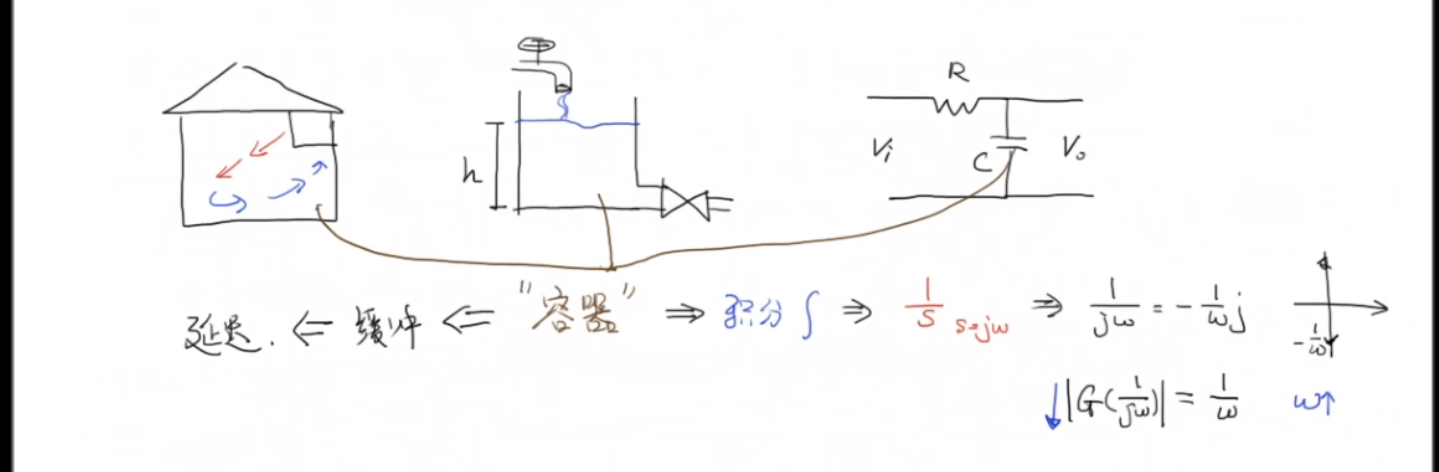 R
h
Vi C Vo
延迟. ⇐ 缓冲 ⇐ "容器" ⇒ 积分 ∫ ⇒ 1/S s=jω ⇒ 1/jω = - 1/ω j
-1/ω
↓|G(1/jω)| = 1/ω ω↑